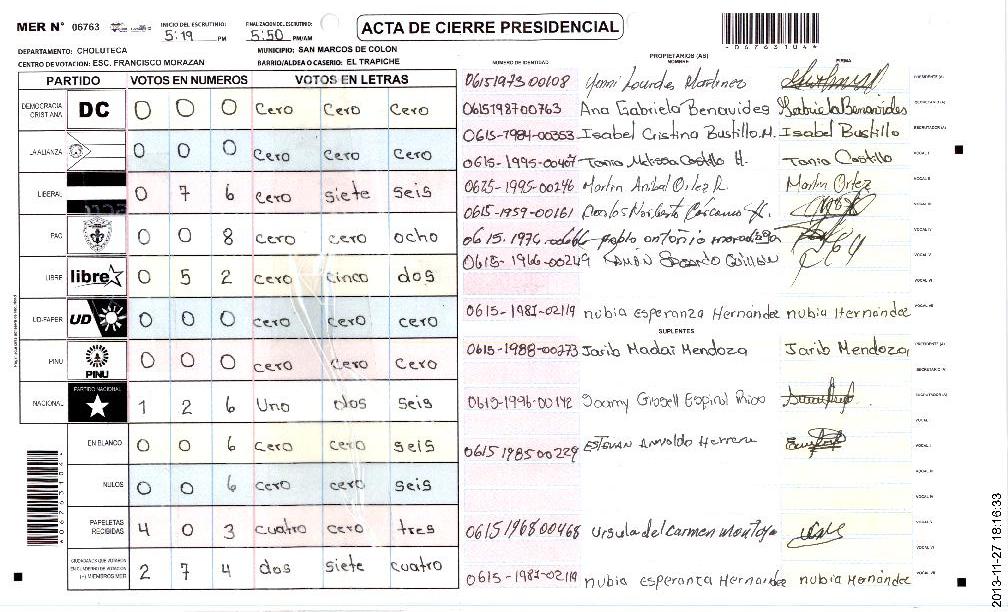 MER N° 06763
INICIO DEL ESCRUTINIO: 5:19 PM
FINALIZACION DEL ESCRUTINIO: 5:50 PM/AM
ACTA DE CIERRE PRESIDENCIAL
*06763104*
DEPARTAMENTO: CHOLUTECA
MUNICIPIO: SAN MARCOS DE COLON
CENTRO DE VOTACION: ESC. FRANCISCO MORAZAN
BARRIO/ALDEA O CASERIO: EL TRAPICHE
PARTIDO VOTOS EN NUMEROS VOTOS EN LETRAS
DEMOCRACIA CRISTIANA DC 0 0 0 cero cero cero
LA ALIANZA 0 0 0 cero cero cero
LIBERAL 0 7 6 cero siete seis
PAC 0 0 8 cero cero ocho
LIBRE libre 0 5 2 cero cinco dos
UD-FAPER UD 0 0 0 cero cero cero
PINU PINU 0 0 0 cero cero cero
NACIONAL PARTIDO NACIONAL 1 2 6 Uno dos seis
EN BLANCO 0 0 6 cero cero seis
NULOS 0 0 6 cero cero seis
PAPELETAS RECIBIDAS 4 0 3 cuatro cero tres
CIUDADANOS QUE VOTARON EN CUADERNO DE VOTACION (+) MIEMBROS MER 2 7 4 dos siete cuatro
NUMERO DE IDENTIDAD
PROPIETARIOS (AS)
NOMBRE
FIRMA
0615197300108 Lourdes Martinez PRESIDENTE (A)
0615198700763 Ana Gabriela Benavides Gabriela Benavides SECRETARIO (A)
0615-1984-00353 Isabel Cristina Bustillo.M. Isabel Bustillo ESCRUTADOR (A)
0615-1995-00407 Tania Melissa Castillo H. Tania Castillo VOCAL I
0615-1995-00246 Marlin Anibal Ortez R. Marlin Ortez VOCAL II
0615-1959-00161 Carlos Norberto Cárcamo VOCAL III
0615.1976 pablo antonio VOCAL IV
0615-1966-00249 VOCAL V
VOCAL VI
0615-1981-02119 nubia Esperanza Hernández nubia Hernández VOCAL VII
SUPLENTES
0615-1988-00273 Jarib Madai Mendoza Jarib Mendoza PRESIDENTE (A)
SECRETARIO (A)
0615-1996-00142 Gissell Espinal ESCRUTADOR (A)
VOCAL
0615198500229 ESTEVAN Arnoldo Herrera VOCAL II
VOCAL III
VOCAL IV
0615196800468 Ursula del carmen montoya VOCAL V
VOCAL VI
0615-1981-02119 nubia Esperanza Hernandez nubia Hernández VOCAL VII
2013-11-27 18:16:33